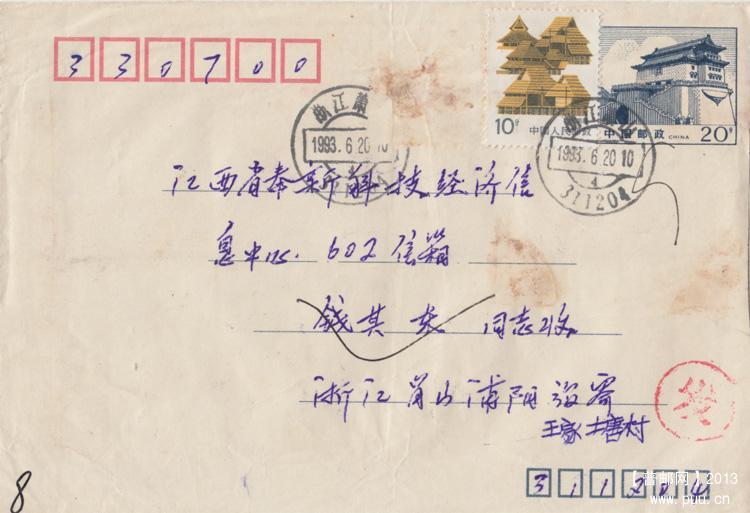 330700
10分 中国人民邮政
中国邮政 CHINA 20分
浙江萧山
1993.6.20 10
浙江萧山
1993.6.20 10
4
311204
江西省奉新科技经济信
息中心. 602信箱
钱其 同志收
浙江肖山浦阳 寄
王家塘村
311204
8
【普邮网】2013
www.puu.cn